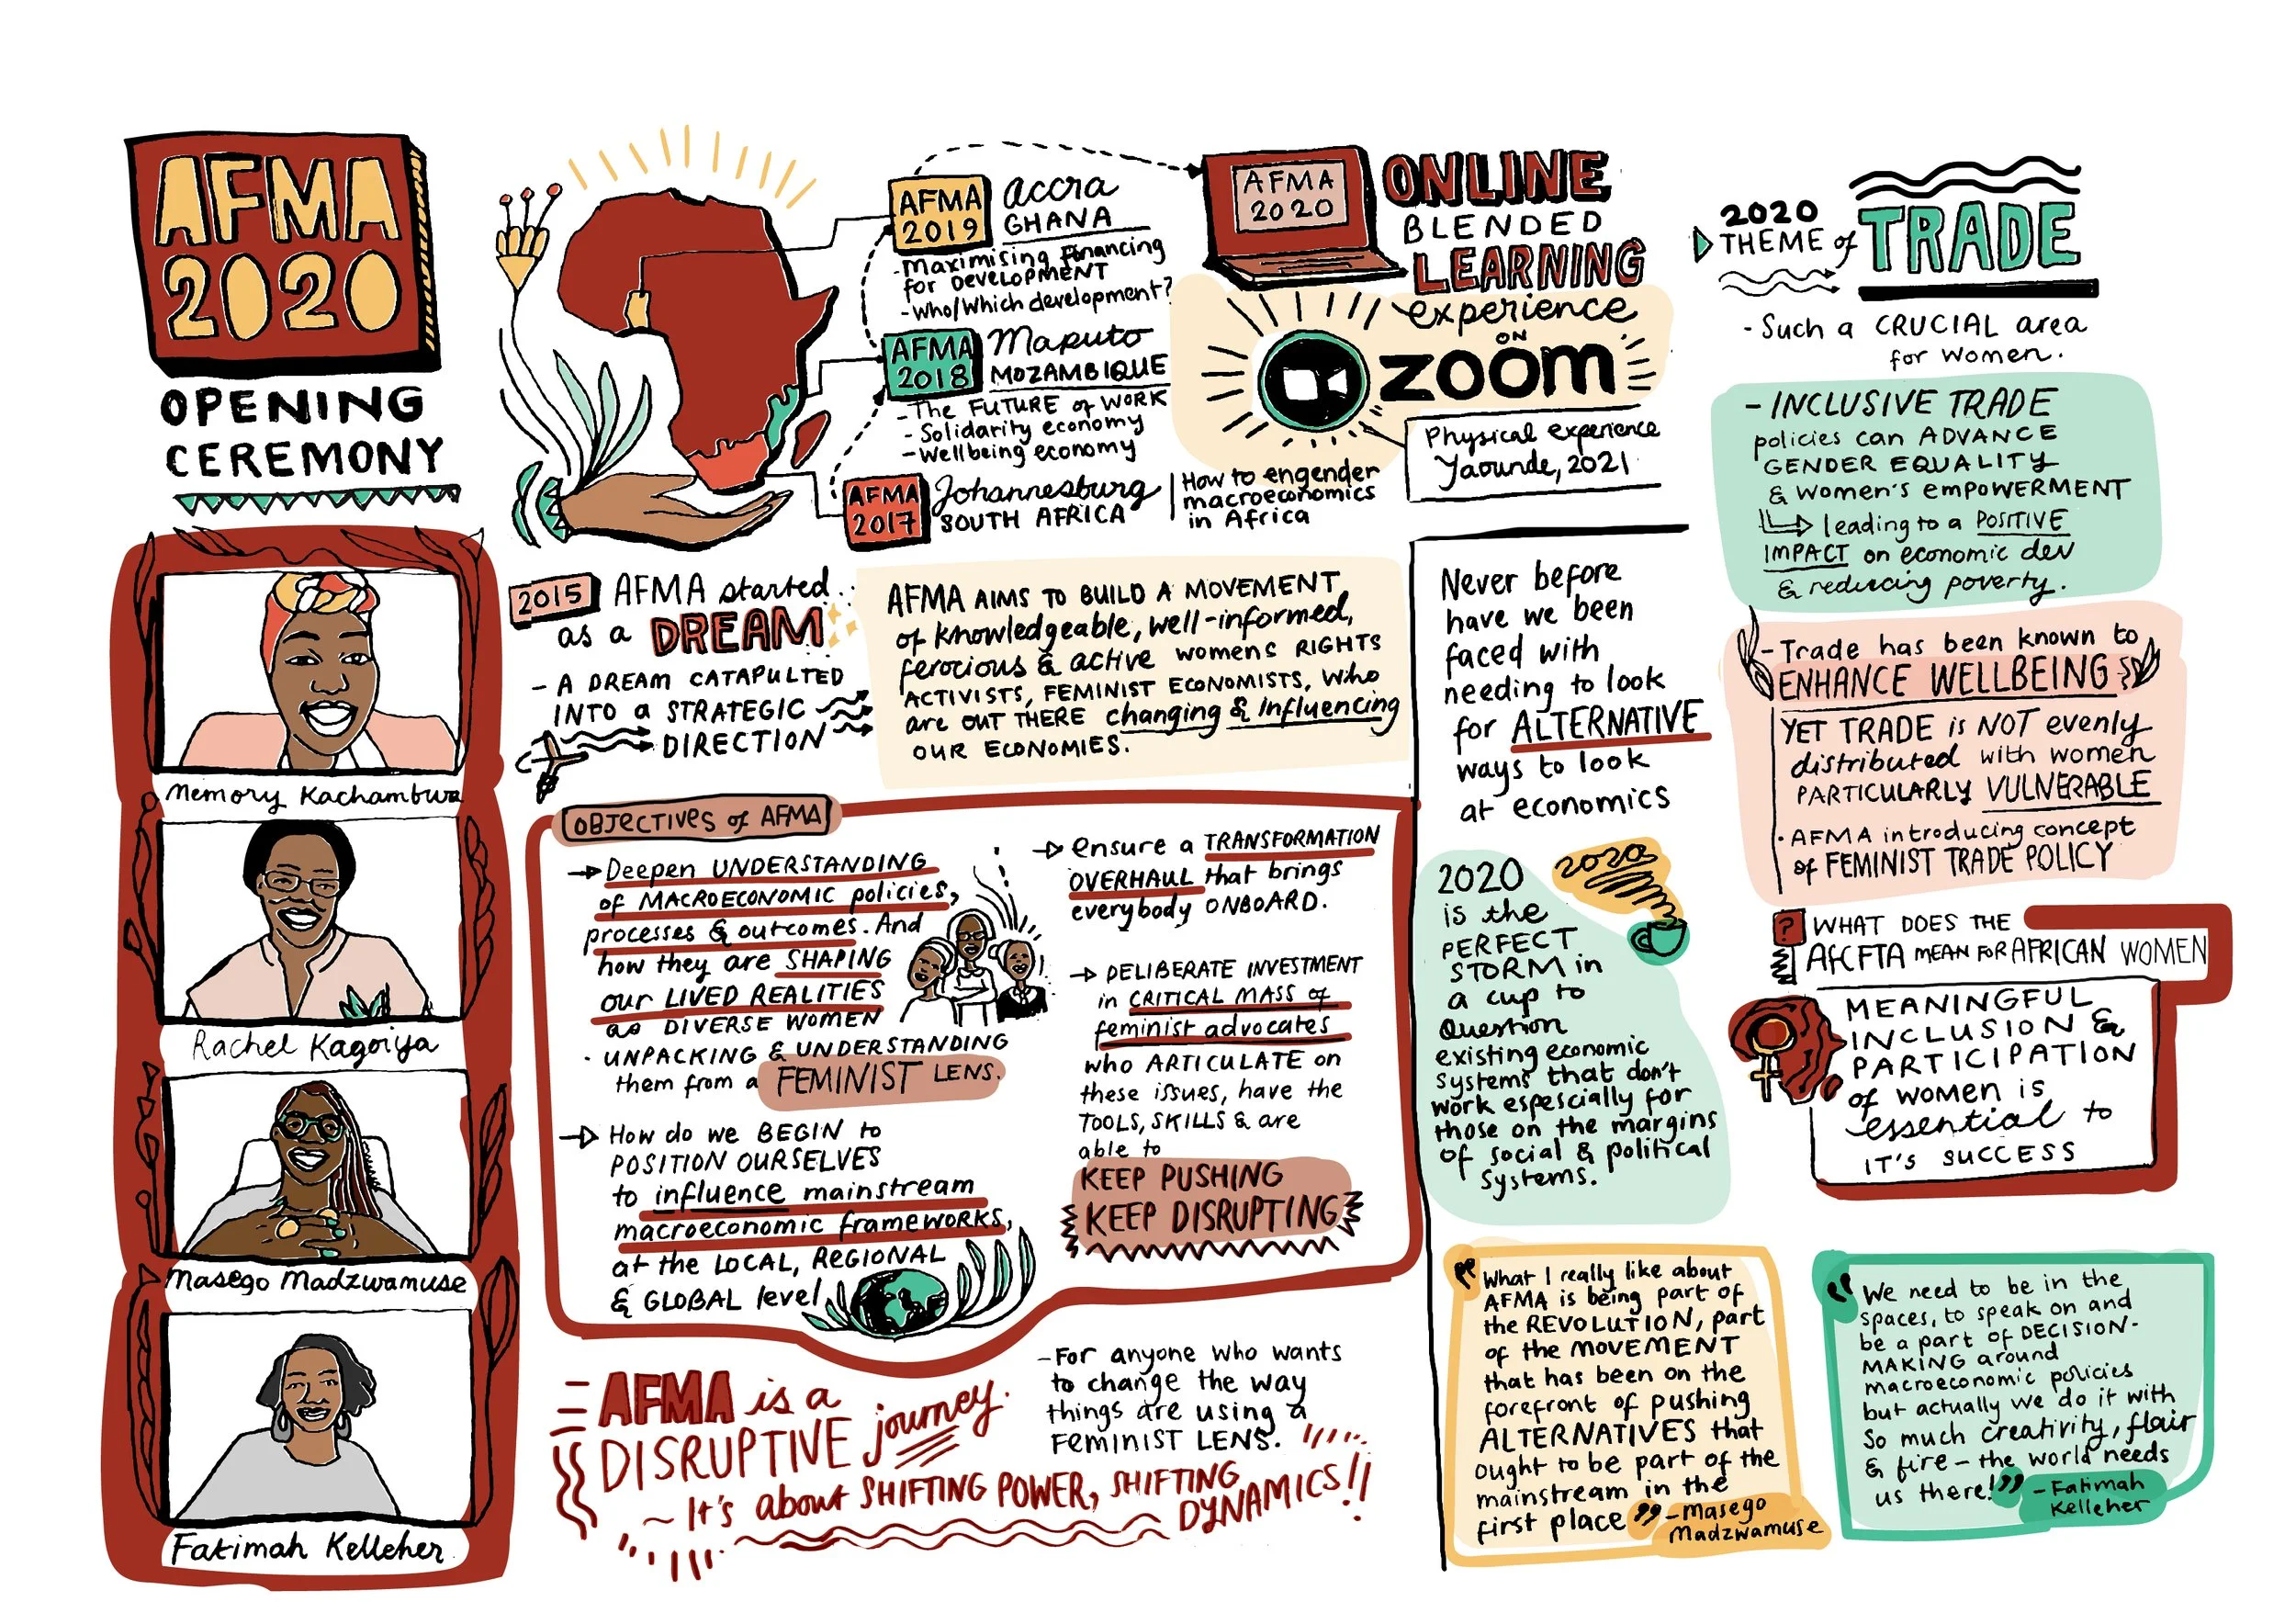 AFMA
2020
OPENING
CEREMONY
Memory Kachambwa
Rachel Kagoiya
Masego Madzwamuse
Fatimah Kelleher
AFMA
2019
accra
GHANA
- Maximising Financing
for DEVELOPMENT
- Who/Which development?
AFMA
2018
Maputo
MOZAMBIQUE
- The FUTURE of WORK
- Solidarity economy
- Wellbeing economy
AFMA
2017
Johannesburg
SOUTH AFRICA
How to engender
macroeconomics
in Africa
AFMA
2020
ONLINE
BLENDED
LEARNING
experience
ON
zoom
Physical experience
Yaounde, 2021
2015 AFMA started
as a DREAM
- A DREAM CATAPULTED
INTO a STRATEGIC
DIRECTION
AFMA AIMS TO BUILD A MOVEMENT
of knowledgeable, well-informed,
ferocious & active WOMENS RIGHTS
ACTIVISTS, FEMINIST ECONOMISTS, WHO
are OUT THERE changing & influencing
OUR ECONOMIES.
OBJECTIVES of AFMA
Deepen UNDERSTANDING
of MACROECONOMIC policies,
processes & outcomes. And
how they are SHAPING
our LIVED REALITIES
as DIVERSE WOMEN
· UNPACKING & UNDERSTANDING
them from a FEMINIST LENS.
How do we BEGIN to
POSITION OURSELVES
to influence mainstream
macroeconomic frameworks,
at the LOCAL, REGIONAL
& GLOBAL level
ensure a TRANSFORMATION
OVERHAUL that brings
everybody ONBOARD.
DELIBERATE INVESTMENT
in CRITICAL MASS of
feminist advocates
who ARTICULATE on
these issues, have the
TOOLS, SKILLS & are
able to
KEEP PUSHING
KEEP DISRUPTING
AFMA is a
DISRUPTIVE journey.
~ It's about SHIFTING POWER, SHIFTING
DYNAMICS!!
- For anyone who wants
to change the way
things are using a
FEMINIST LENS.
Never before
have we been
faced with
needing to look
for ALTERNATIVE
ways to look
at economics
2020
2020
is the
PERFECT
STORM in
a cup to
Question
existing economic
systems that don't
work espescially for
those on the margins
of social & political
systems.
"What I really like about
AFMA is being part of
the REVOLUTION, part
of the MOVEMENT
that has been on the
forefront of pushing
ALTERNATIVES that
ought to be part of the
mainstream in the
first place" - Masego
Madzwamuse
2020
THEME of TRADE
- Such a CRUCIAL area
for women.
- INCLUSIVE TRADE
policies can ADVANCE
GENDER EQUALITY
& WOMEN'S EMPOWERMENT
leading to a POSITIVE
IMPACT on economic dev
& reducing poverty.
- Trade has been known to
ENHANCE WELLBEING
YET TRADE is NOT evenly
distributed with women
PARTICULARLY VULNERABLE
· AFMA introducing concept
of FEMINIST TRADE POLICY
? WHAT DOES THE
AfCFTA MEAN FOR AFRICAN WOMEN
MEANINGFUL
INCLUSION &
PARTICIPATION
of WOMEN is
essential to
IT'S SUCCESS
"We need to be in the
spaces, to speak on and
be a part of DECISION-
MAKING around
macroeconomic policies
but actually we do it with
so much creativity, flair
& fire - the world needs
us there!" - Fatimah
Kelleher